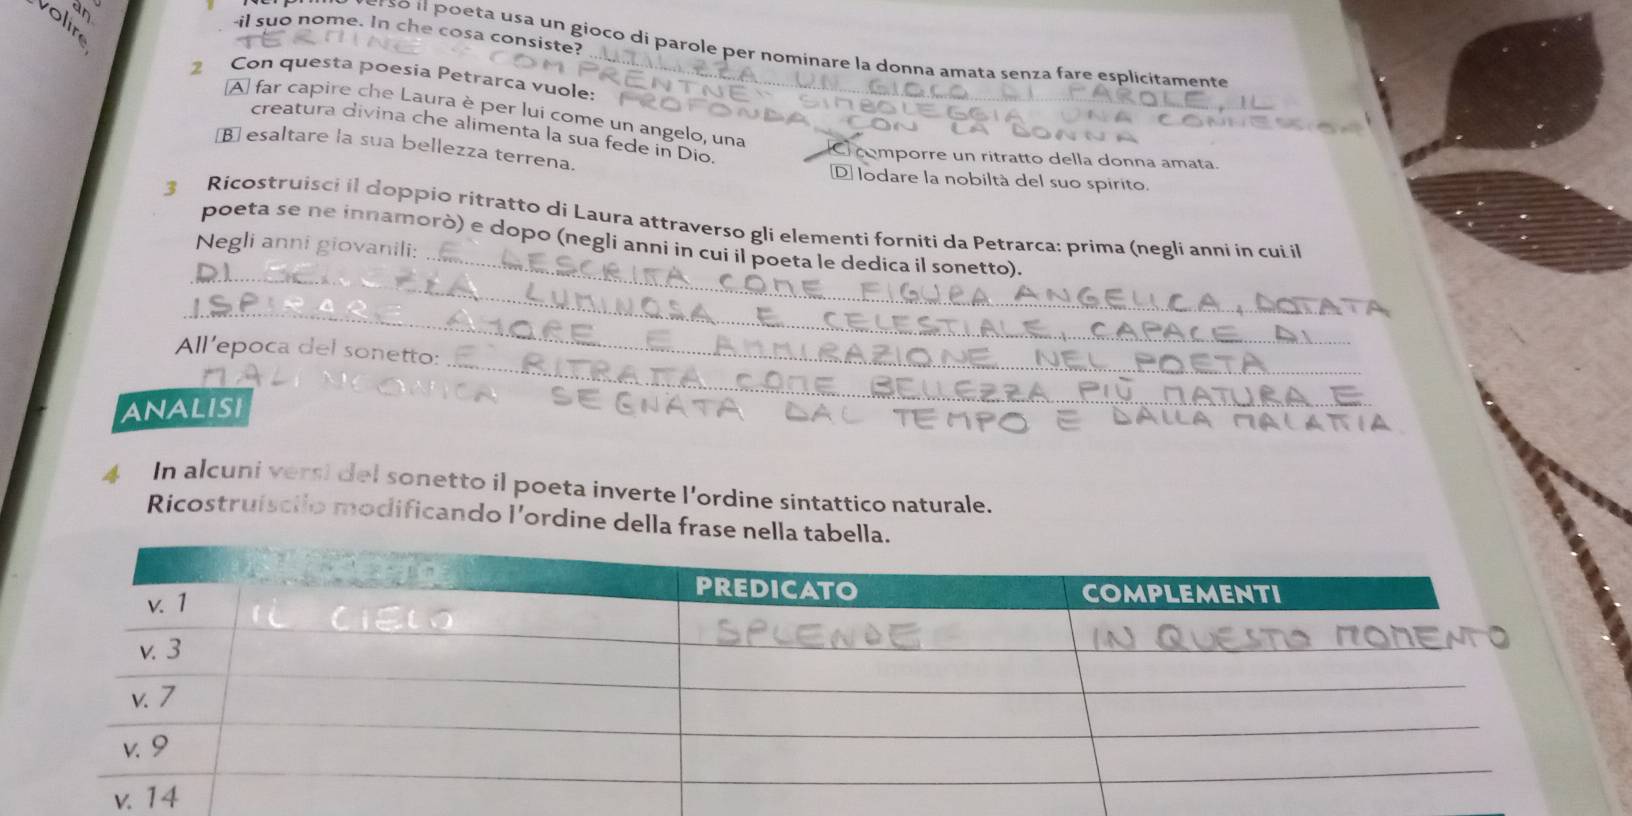 an
volire,
verso il poeta usa un gioco di parole per nominare la donna amata senza fare esplicitamente
il suo nome. In che cosa consiste? UTILIZZA UN GIOCO DI PAROLE, IL
TERMINE "COMPRENTNE" SIMBOLEGGIA UNA CONNESSIONE
PROFONDA CON LA DONNA
2 Con questa poesia Petrarca vuole:
A far capire che Laura è per lui come un angelo, una
creatura divina che alimenta la sua fede in Dio.
B esaltare la sua bellezza terrena.
C comporre un ritratto della donna amata.
D lodare la nobiltà del suo spirito.
3 Ricostruisci il doppio ritratto di Laura attraverso gli elementi forniti da Petrarca: prima (negli anni in cui il
poeta se ne innamorò) e dopo (negli anni in cui il poeta le dedica il sonetto).
Negli anni giovanili: E DESCRITTA COME FIGURA ANGELICA, DOTATA
DI BELLEZZA LUMINOSA E CELESTIALE, CAPACE DI
ISPIRARE AMORE E AMMIRAZIONE NEL POETA
All'epoca del sonetto: E RITRATTA COME BELLEZZA PIÙ MATURA E
MALINCONICA SEGNATA DAL TEMPO E DALLA MALATTIA
ANALISI
4 In alcuni versi del sonetto il poeta inverte l'ordine sintattico naturale.
Ricostruiscilo modificando l'ordine della frase nella tabella.
PREDICATO COMPLEMENTI
v. 1 IL CIELO SPLENDE IN QUESTO MOMENTO
v. 3
v. 7
v. 9
v. 14